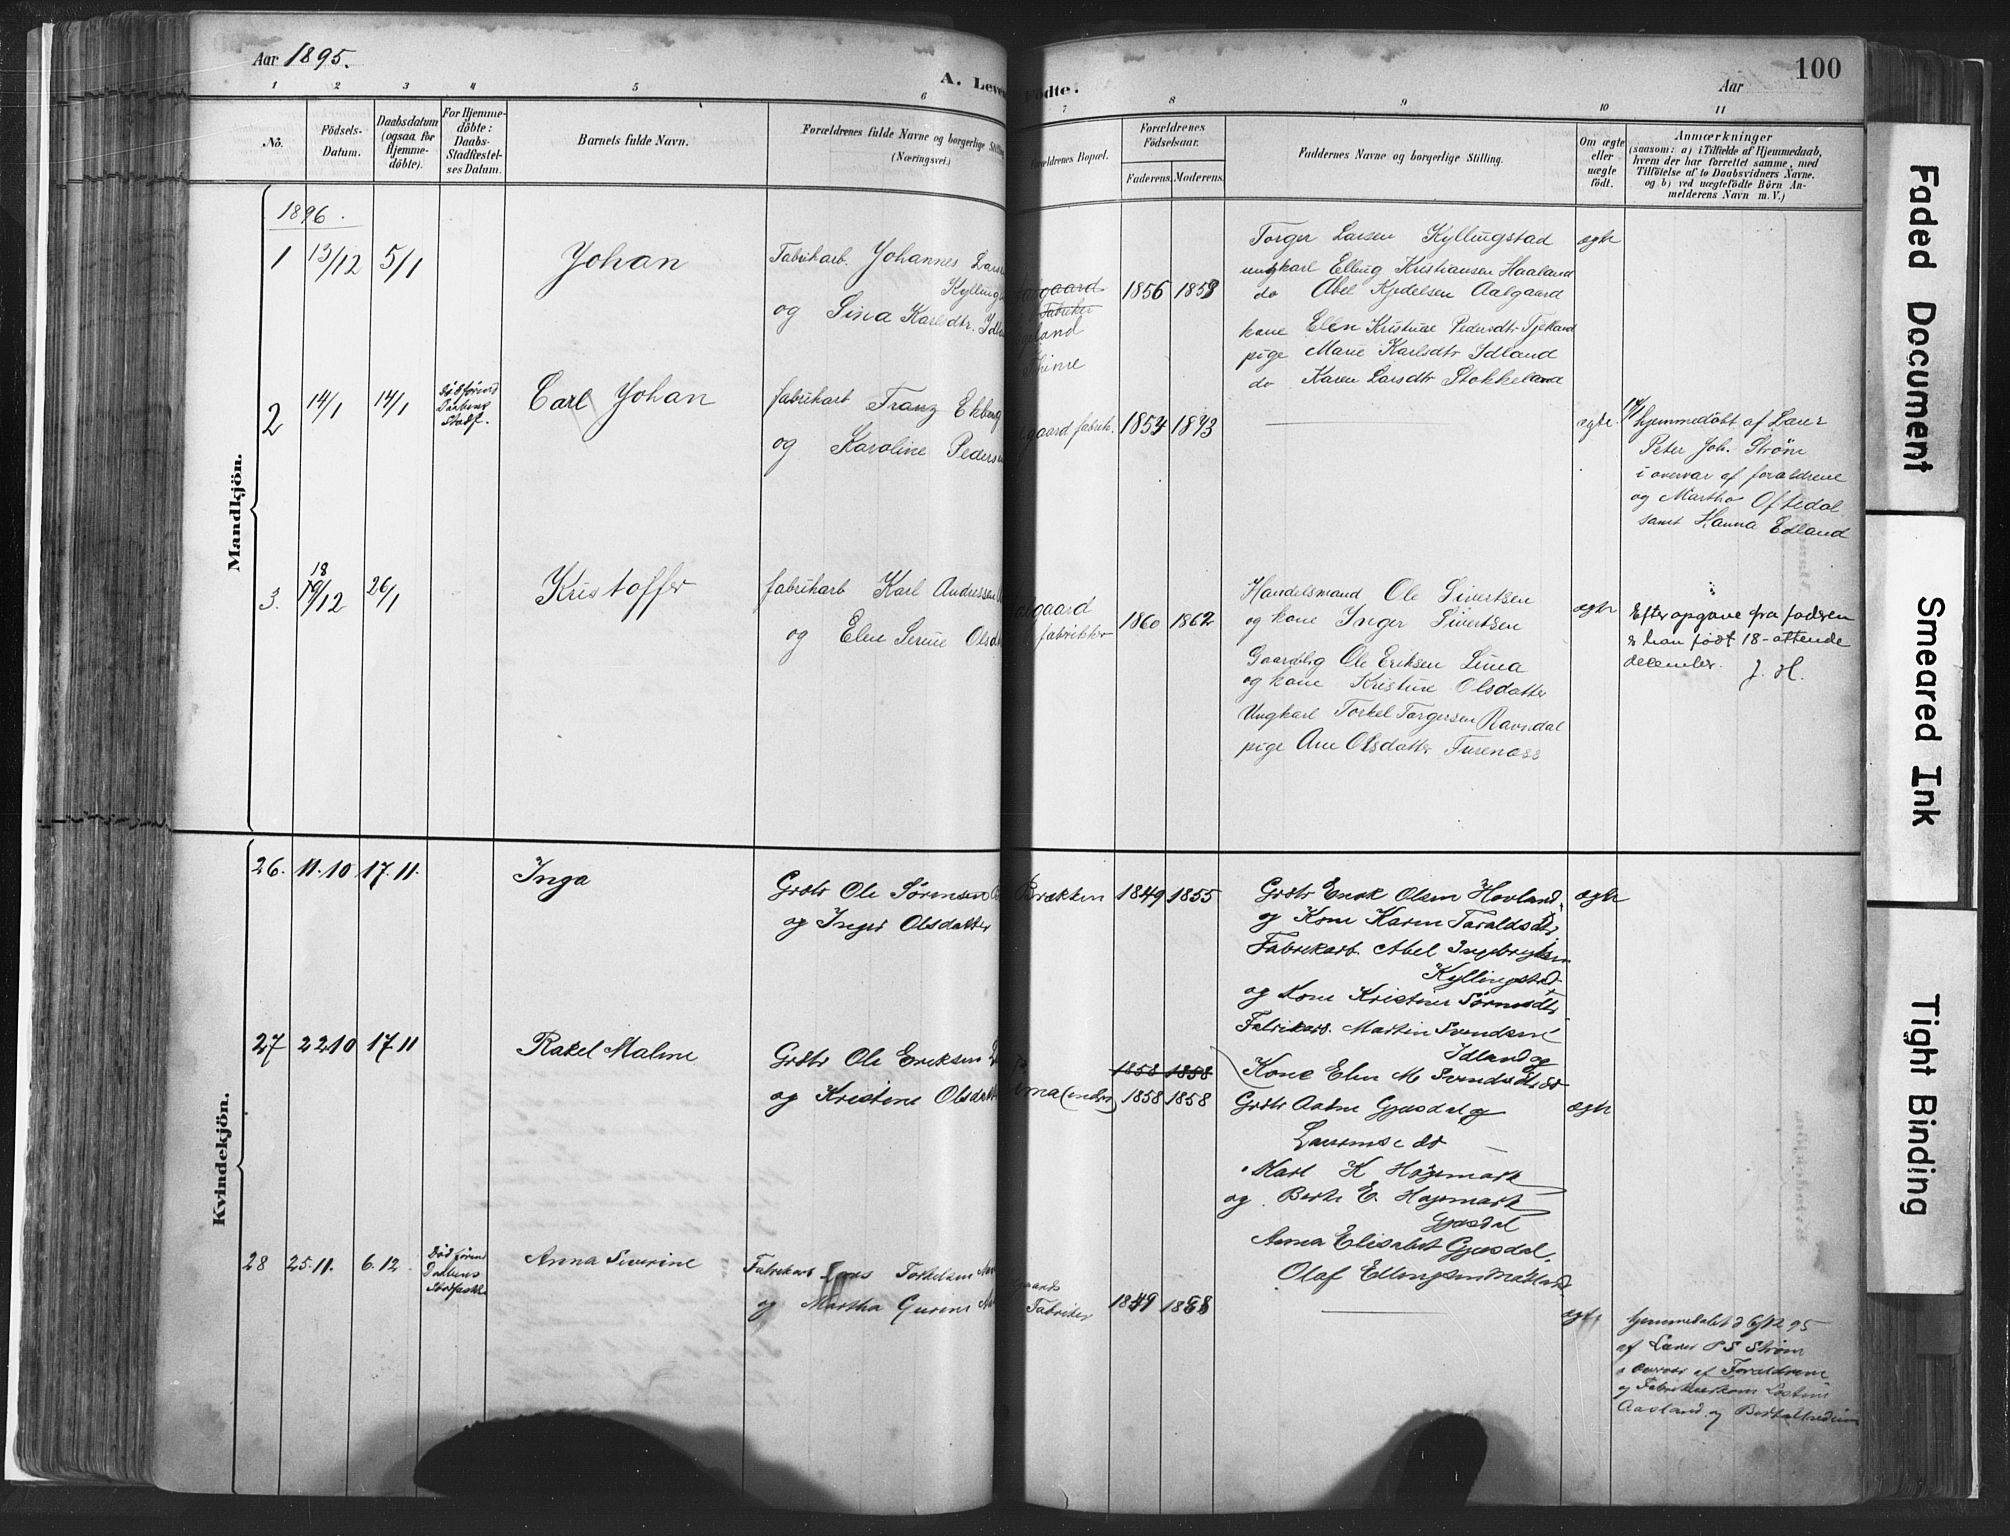 Aar 1895.
A. Leve
Födte.
Aar
100
1 2 3 4 5 6 7 8 9 10 11
No.
Födsels-
Datum.
Daabsdatum
(ogsaa for
Hjemme-
döbte).
For Hjemme-
döbte:
Daabs-
Stadfæstel-
ses Datum.
Barnets fulde Navn.
Forældrenes fulde Navne og borgerlige Stilling
(Næringsvei.)
Forældrenes Bopæl.
Forældrenes
Födselsaar.
Faderens. Moderens.
Faddernes Navne og borgerlige Stilling.
Om ægte
eller
uægte
födt.
Anmærkninger
(saasom: a) i Tilfælde af Hjemmedaab,
hvem der har forrettet samme, med
Tilföielse af to Daabsvidners Navne.
og b) ved uægtefödte Börn An-
melderens Navn m. V.)
Mandkjön.
1896.
1 13/12 5/1 Johan
Fabrikarb. Johannes Lars
Kylling
og Sina Karlsdtr. Idla
Fabriker
1856 1858
Torger Larsen Kyllingstad
ungkarl Elling Kristiansen Haaland
do Abel Kjedelsen Aalgaard
kone Elen Kristine Pedersdtr
pige Marie Karlsdtr Idland
do Karen Larsdtr Stokkeland
ægte
2 14/1 14/1
Død førend
Daabens
Stadf.
Carl Johan
fabrikarb Franz Ekberg
og Karoline Peders
gaard fabrik.
1854 1873
ægte
hjemmedöbt af Lærer
Peter Joh. Strøm
i overvær af forældrene
og Martha Oftedal
samt Hanna Edland
3. 18
19/12 26/1 Kristoffer
fabrikarb Karl Andreassen
og Elen Serine Olsd
gaard
fabrikker
1860 1862
Handelsmand Ole Sivertsen
og kone Inger Sivertsen
Gaardbrg Ole Eriksen Lima
og kone Kristine Olsdatter
Ungkarl Torkel Torgersen Ravndal
pige Ane Olsdatter
ægte
Efter opgave fra faderen
er han født 18-attende
december. J. H.
Kvindekjön.
26. 11.10 17.11. Inga
Grdbr Ole Sørensen
og Inger Olsdatter
Brækken 1849 1855
Grdbr Enok Olsen Hovland
og Kone Karen Taraldsdtr
Fabrikarb. Abel Ingebrigtsen
Kyllingstad
og Kone Kristine Sørensdtr
Fabrikarb. Martin Svendsen
Idland og
Kone Elen M Svendsdtr
ægte
27 22 10 17 11 Rakel Maline
Grdbr Ole Eriksen
og Kristine Olsdatter
Lima (indre)
1858 1858
1858 1858
Grdbr Gjesdal og
do
Karl K Høgemark
og Berte E. Høgemark
Gjesdal
Anna Elisabet Gjesdal
Olaf Ellingsen
ægte
28 25.11. 6.12
Død førend
Daabens
Stadfæstelse
Anna Severine
Fabrikarb Lars Torkelsen
og Martha Gurine
gaards
Fabriker
1849 1858
ægte
Hjemmedøbt d 6/12 95
af Lærer P S Strøm
i overvær af Forældrene
og Fabrikarb kone
Aasland og
Faded Document
Smeared Ink
Tight Binding